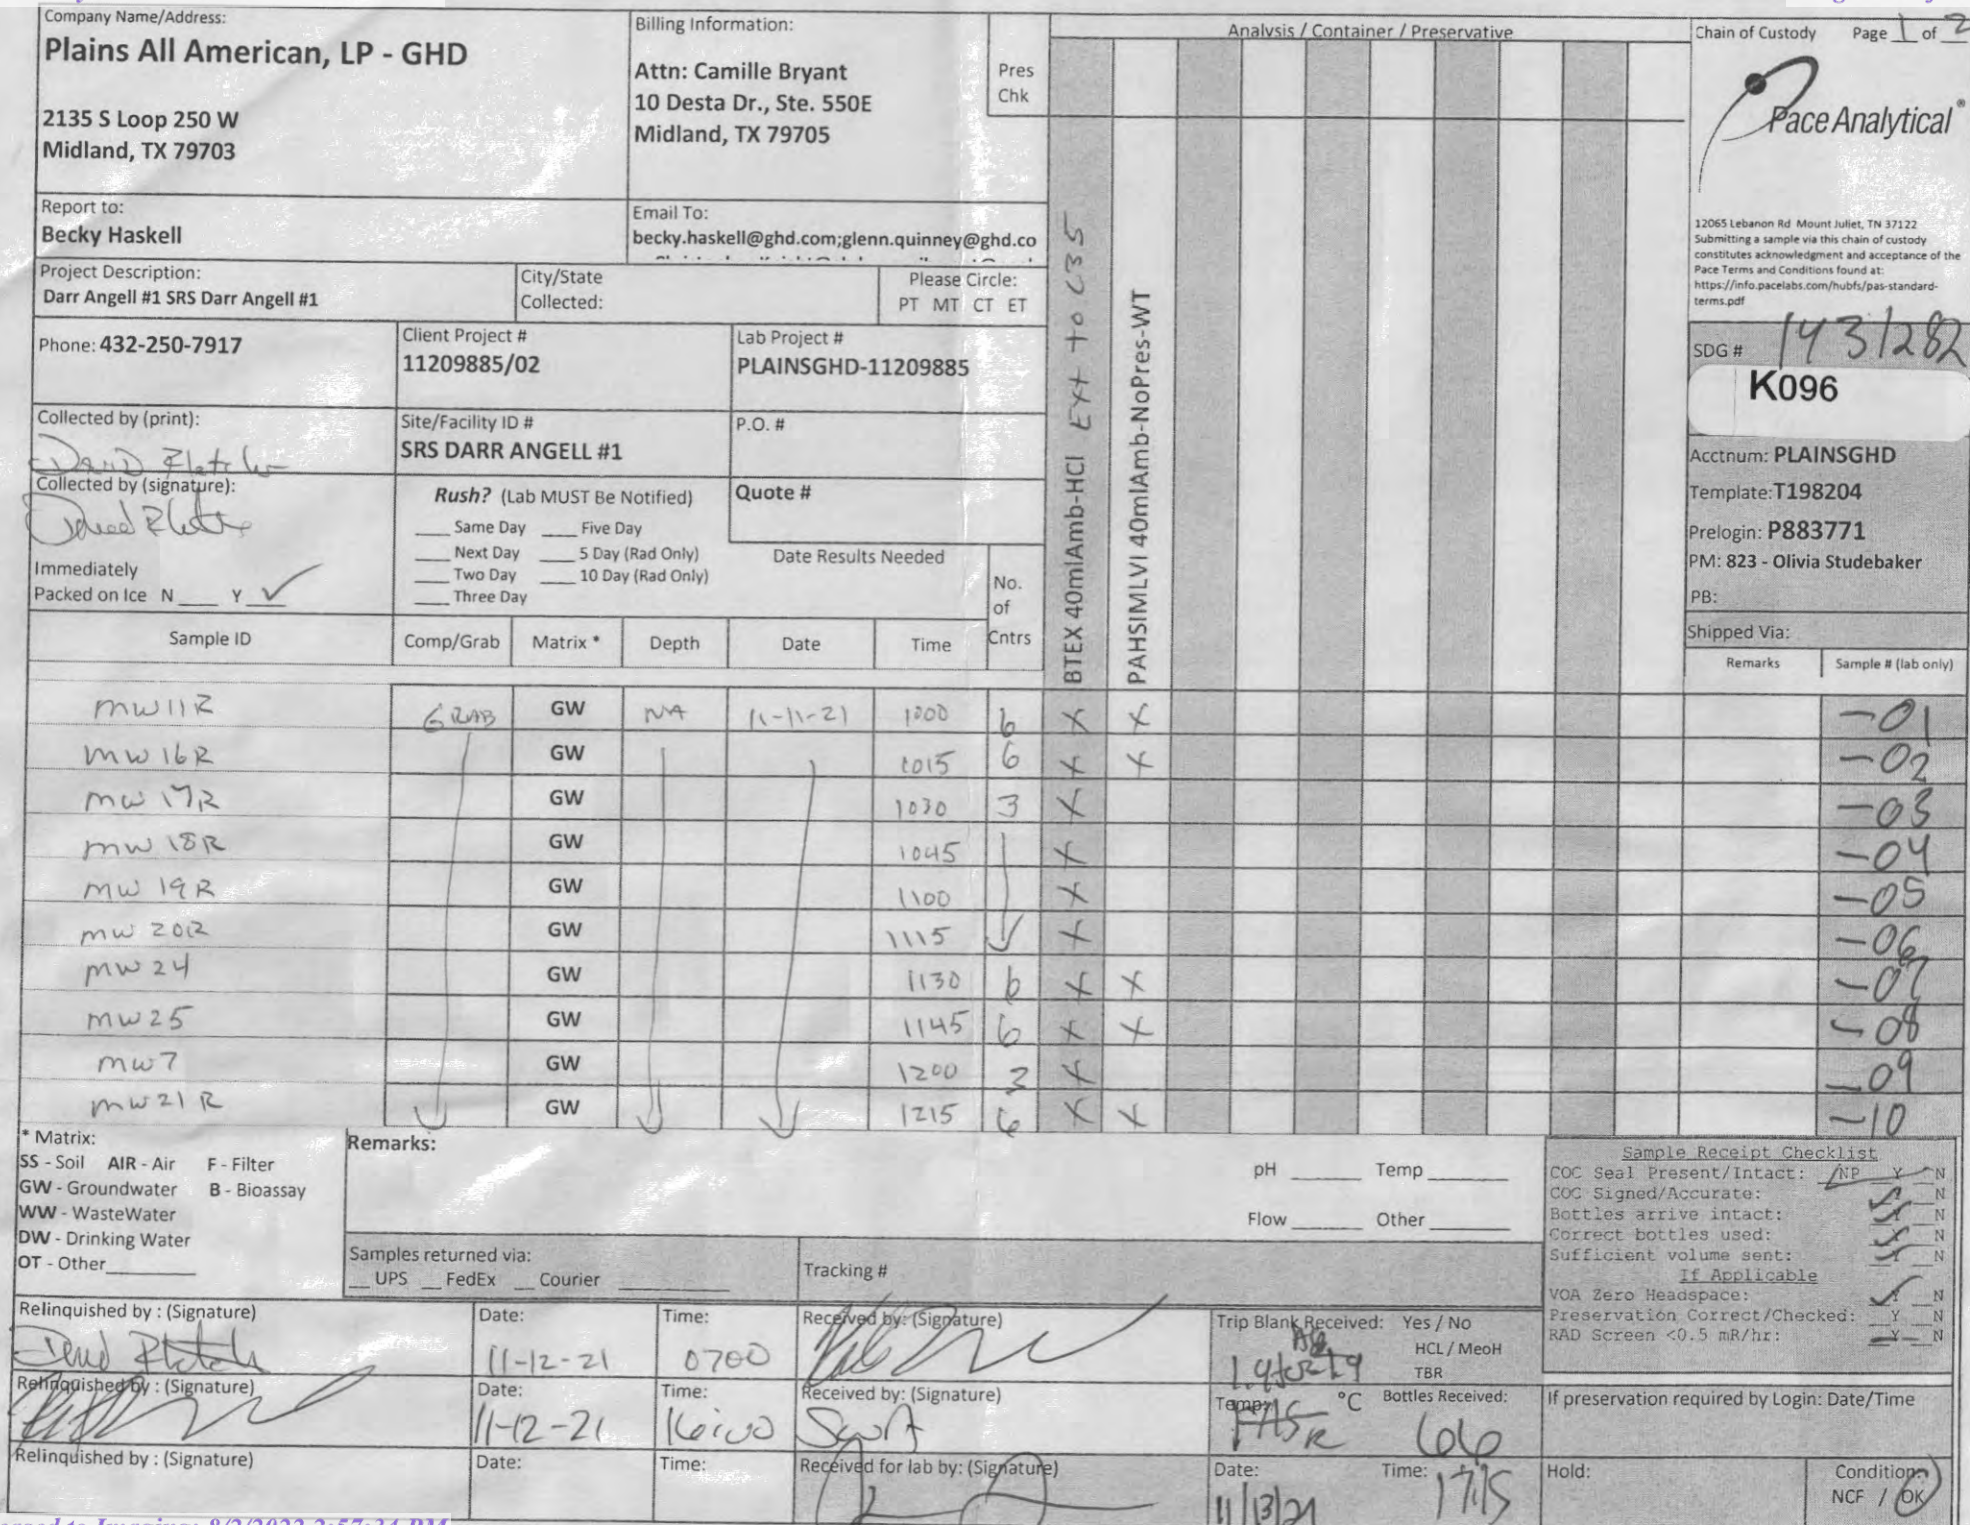 Company Name/Address:
Plains All American, LP - GHD
2135 S Loop 250 W
Midland, TX 79703
Billing Information:
Attn: Camille Bryant
10 Desta Dr., Ste. 550E
Midland, TX 79705
Pres
Chk
Analysis / Container / Preservative
Chain of Custody Page 1 of 2
Pace Analytical®
12065 Lebanon Rd Mount Juliet, TN 37122
Submitting a sample via this chain of custody
constitutes acknowledgment and acceptance of the
Pace Terms and Conditions found at:
https://info.pacelabs.com/hubfs/pas-standard-
terms.pdf
Report to:
Becky Haskell
Email To:
becky.haskell@ghd.com;glenn.quinney@ghd.co
Project Description:
Darr Angell #1 SRS Darr Angell #1
City/State
Collected:
Please Circle:
PT MT CT ET
Phone: 432-250-7917
Client Project #
11209885/02
Lab Project #
PLAINSGHD-11209885
Collected by (print):
David Fletcher
Site/Facility ID #
SRS DARR ANGELL #1
P.O. #
Collected by (signature):
Rush? (Lab MUST Be Notified)
Same Day Five Day
Next Day 5 Day (Rad Only)
Two Day 10 Day (Rad Only)
Three Day
Quote #
Date Results Needed
Immediately
Packed on Ice N Y ✓
No.
of
Cntrs
BTEX 40mlAmb-HCl Ext to C35
PAHSIMLVI 40mlAmb-NoPres-WT
SDG # 1431282
K096
Acctnum: PLAINSGHD
Template:T198204
Prelogin: P883771
PM: 823 - Olivia Studebaker
PB:
Shipped Via:
Sample ID Comp/Grab Matrix * Depth Date Time Remarks Sample # (lab only)
MW11R GRAB GW NA 11-11-21 1000 6 X X -01
MW16R GW 1015 6 X X -02
MW17R GW 1030 3 X -03
MW18R GW 1045 X -04
MW19R GW 1100 X -05
MW20R GW 1115 X -06
MW24 GW 1130 6 X X -07
MW25 GW 1145 6 X X -08
MW7 GW 1200 3 X -09
MW21R GW 1215 6 X X -10
* Matrix:
SS - Soil AIR - Air F - Filter
GW - Groundwater B - Bioassay
WW - WasteWater
DW - Drinking Water
OT - Other
Remarks:
pH Temp
Flow Other
Samples returned via:
UPS FedEx Courier
Tracking #
Sample Receipt Checklist
COC Seal Present/Intact: NP Y N
COC Signed/Accurate: Y N
Bottles arrive intact: Y N
Correct bottles used: Y N
Sufficient volume sent: Y N
If Applicable
VOA Zero Headspace: Y N
Preservation Correct/Checked: Y N
RAD Screen <0.5 mR/hr: Y N
Relinquished by : (Signature)
Date: 11-12-21
Time: 0700
Received by: (Signature)
Trip Blank Received: Yes / No
HCL / MeoH
TBR
Relinquished by : (Signature)
Date: 11-12-21
Time: 16:00
Received by: (Signature)
Temp: °C Bottles Received:
66
If preservation required by Login: Date/Time
Relinquished by : (Signature)
Date:
Time:
Received for lab by: (Signature)
Date: 11/13/21
Time: 1715
Hold:
Condition:
NCF / OK
8/2/2022 2:57:34 PM